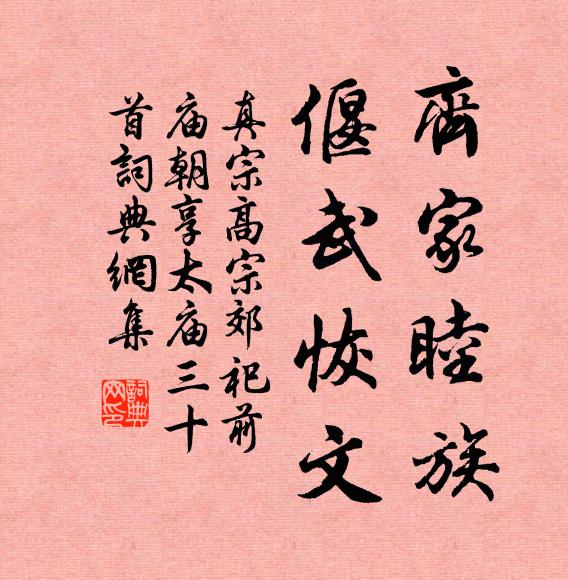 齊家睦族
偃武恢文
真宗髙宗郊祀前
庙朝享太庙三十
首詞典網集
詞典网印